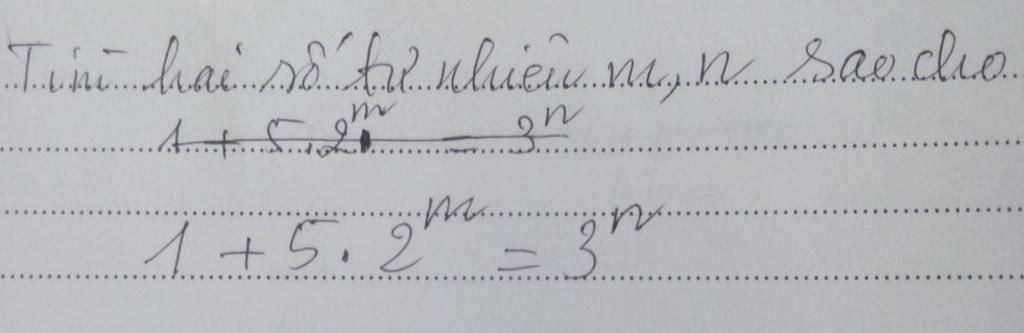 Tìm hai số tự nhiên m, n sao cho
1 + 5.2^m = 3^n
1 + 5 . 2^m = 3^n